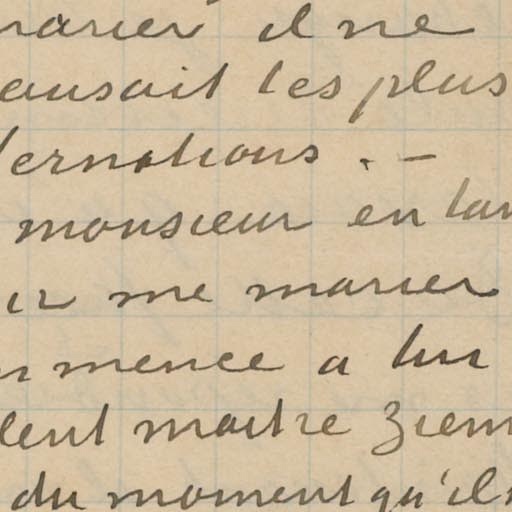 marier il ne
ausait les plus
ernations . –
monsieur en tan
ir me marier
mence a lui
lent maitre ziem
du moment qu'il